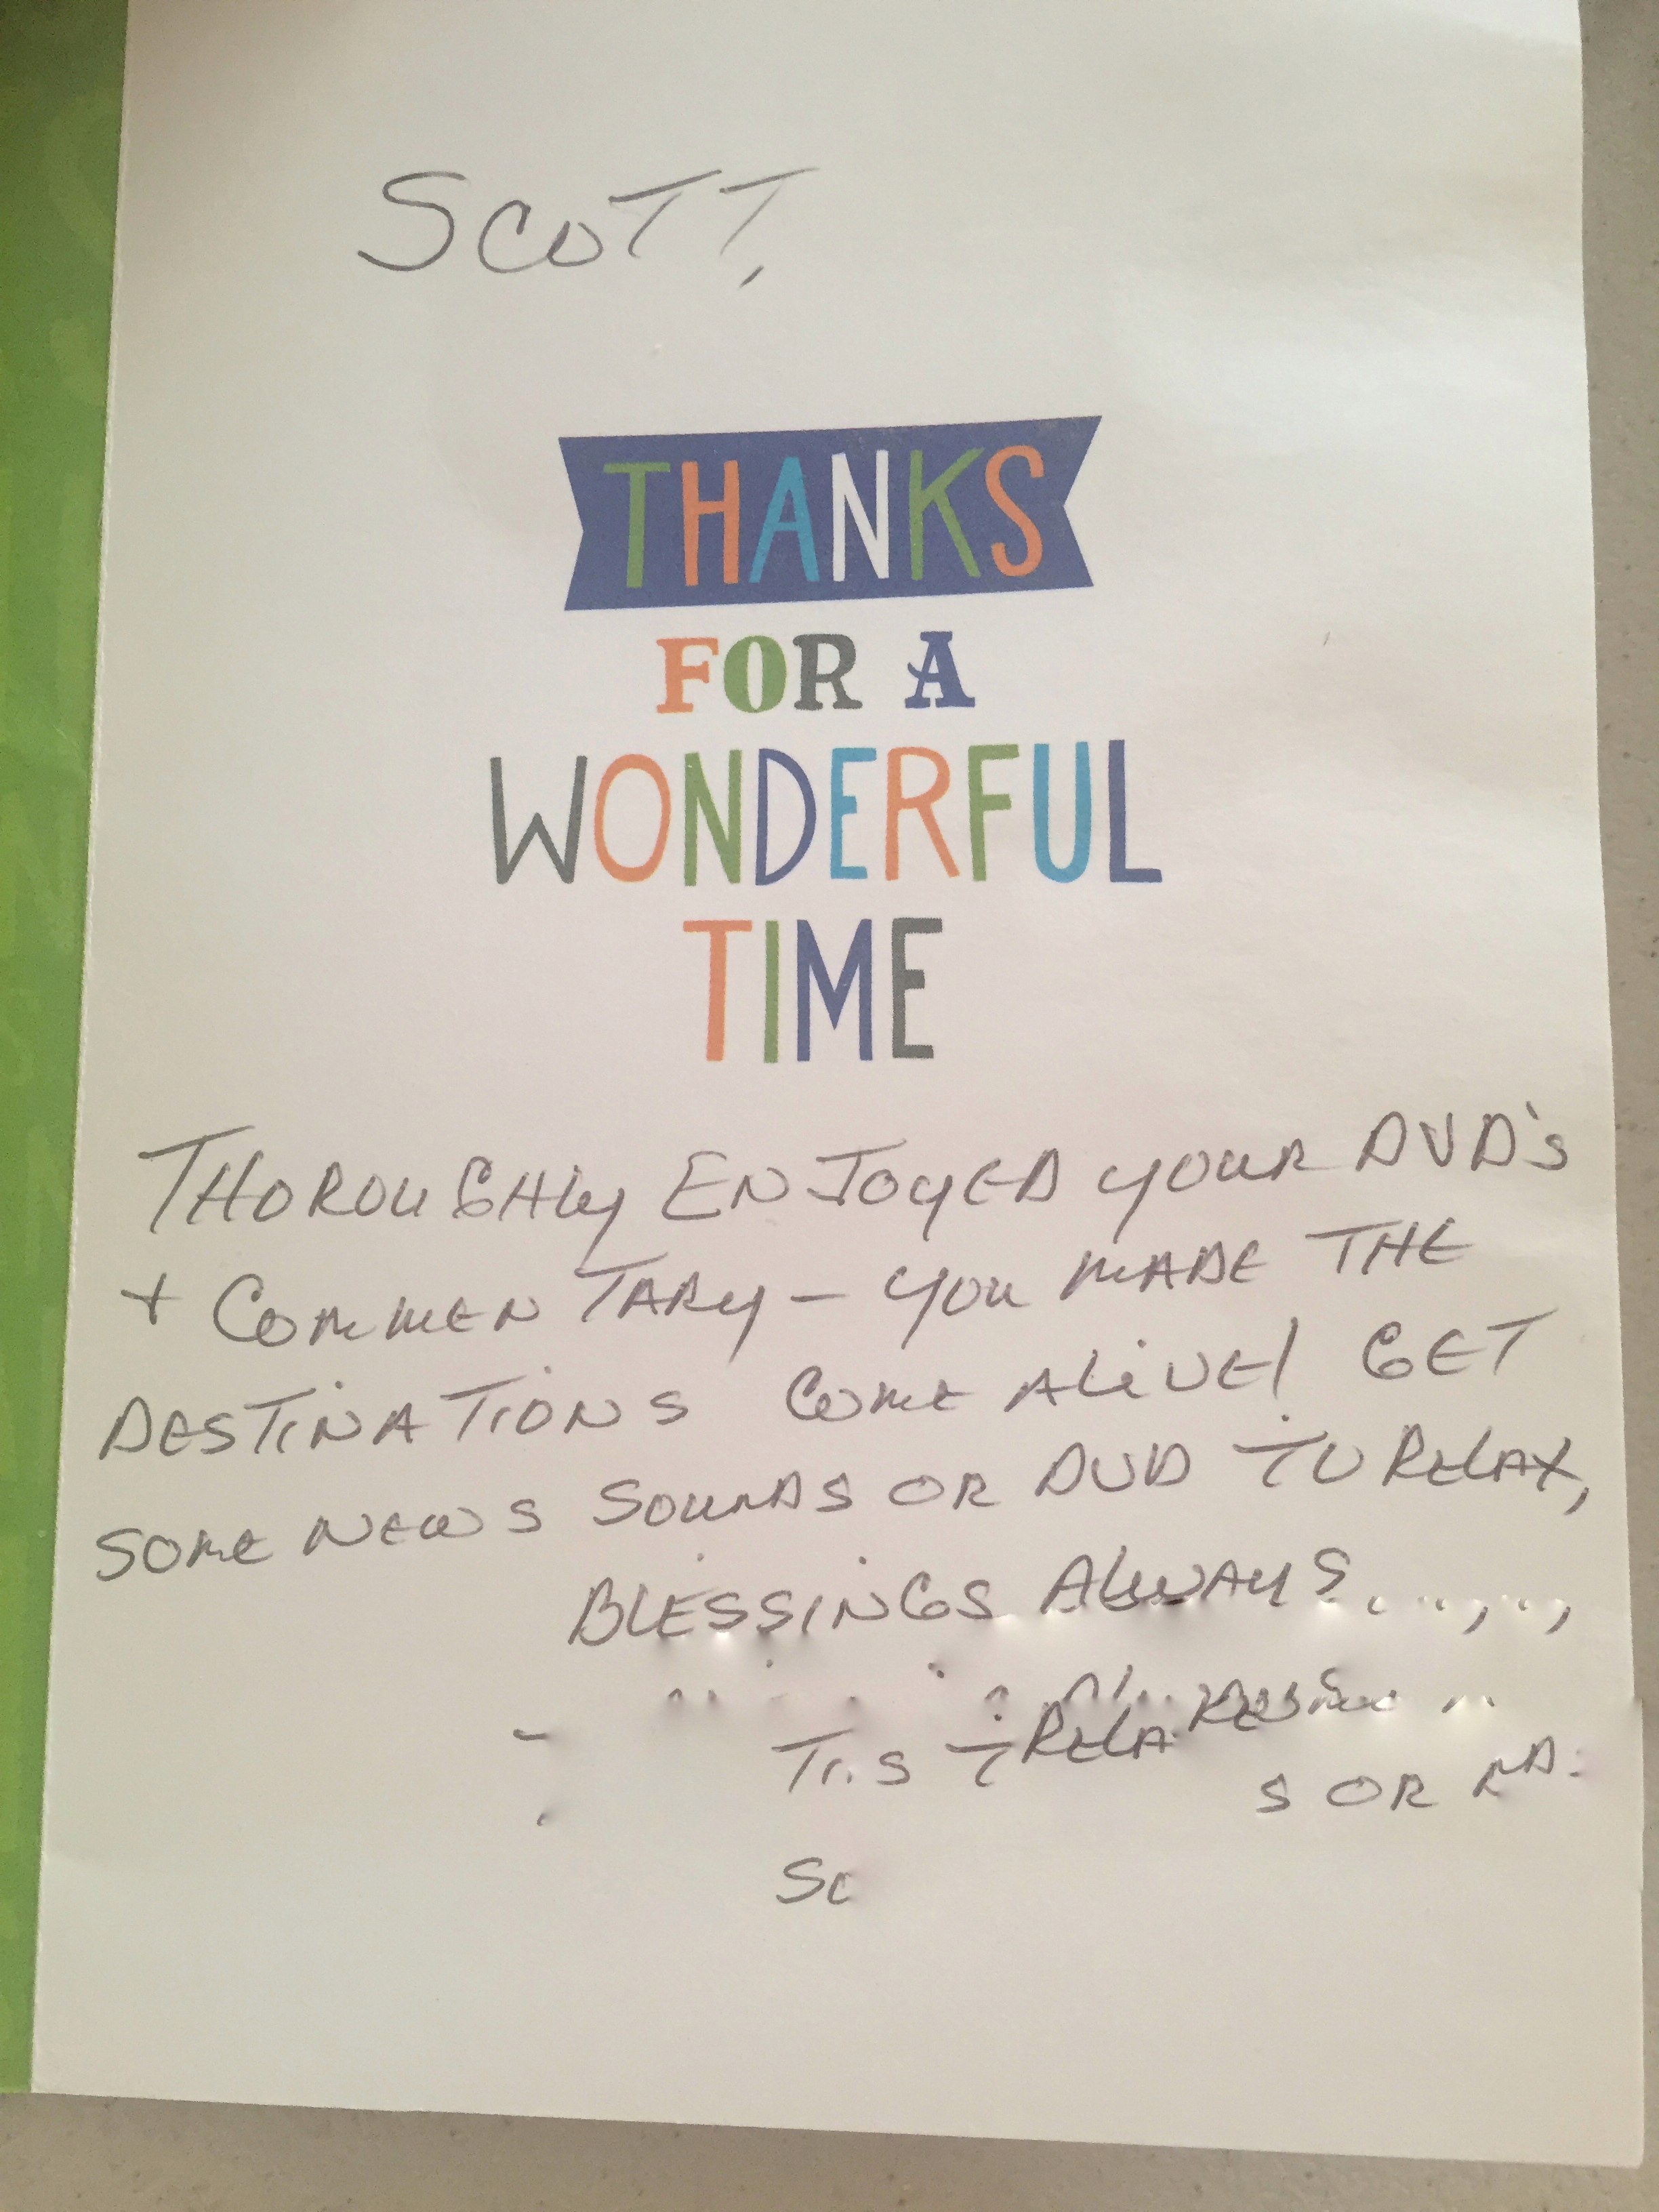 SCOTT,
THANKS
FOR A
WONDERFUL
TIME
THOROUGHLY ENJOYED YOUR DVD's
+ COMMENTARY – YOU MADE THE
DESTINATIONS COME ALIVE! GET
SOME NEWS SOUNDS OR DVD TO RELAX,
BLESSINGS ALWAYS
S OR